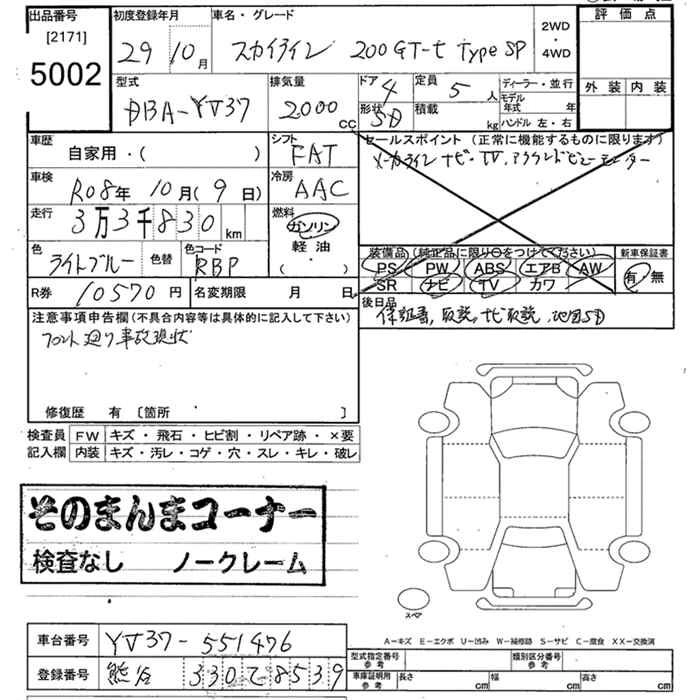 出品番号
[2171]
5002
初度登録年月
29 10月
車名・グレード
スカイライン 200GT-t Type SP
2WD
・
4WD
評価点
外装 内装
型式
DBA-YV37
排気量
2000cc
ドア 4
形状 SD
定員 5人
積載 kg
ディーラー・並行
モデル年式 年
ハンドル 左・右
車歴
自家用・( )
シフト
FAT
セールスポイント(正常に機能するものに限ります)
メーカーライン ナビ・TV.アラウンドビューモニター
車検
R08年 10月(9日)
冷房
AAC
走行
3万3千830km
燃料
ガソリン
軽油
( ・ )
色
ライトブルー
色替
色コード
RBP
装備品(純正品に限り○をつけてください)
PS PW ABS エアB AW
SR ナビ TV カワ
新車保証書
有・無
R券 10570円
名変期限 月 日
後日品
保証書,取説,ナビ取説,地図SD
注意事項申告欄(不具合内容等は具体的に記入して下さい)
フロント廻り事故現状
修復歴 有 [箇所 ]
検査員 FW キズ・飛石・ヒビ割・リペア跡・×要
記入欄 内装 キズ・汚レ・コゲ・穴・スレ・キレ・破レ
そのまんまコーナー
検査なし ノークレーム
スペア
A-キズ E-エクボ U-凹み W-補修跡 S-サビ C-腐食 XX-交換済
車台番号 YV37-551476
登録番号 熊谷 330て8539
型式指定番号
参考
類別区分番号
参考
車庫証明用
参考
長さ cm 幅 cm 高さ cm